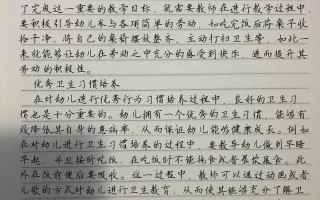 了完成这一重要的教学目标，就需要教师在进行教学过程中，
要积极引导幼儿参与各项简单的劳动，如吃完饭后将桌子收
拾干净，将自己的桌椅摆放整齐，主动打扫卫生等，如此一
来就能够让幼儿在劳动之中充分的感受到快乐，进而提升其
劳动的积极性。
优秀卫生习惯培养
在对幼儿进行优秀行为习惯培养过程中，良好的卫生习
惯也是十分重要的。幼儿拥有一个优秀的卫生习惯，能够有
效降低其自身的患病率，从而保证幼儿能够健康成长。例如
在对幼儿进行卫生习惯培养的过程中，要教导幼儿做到早睡
早起，并且按时吃饭，在吃饭时不能挑食或者暴饮暴食。此
外在饭前便后要洗手。这一过程中，教师可以通过动画或者
儿歌的方式对幼儿进行卫生教育，从而使其能够充分了解卫